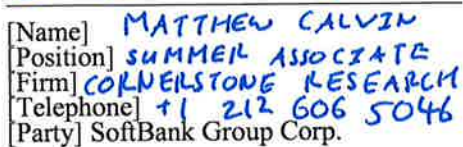 [Name] MATTHEW CALVIN
[Position] SUMMER ASSOCIATE
[Firm] CORNERSTONE RESEARCH
[Telephone] +1 212 606 5046
[Party] SoftBank Group Corp.